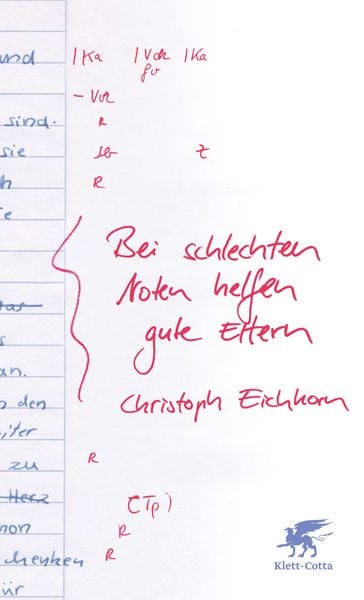 und |Ka |Vok |Ka
gu
- Vok
sind. R
sie sb z
h R
e
Bei schlechten
Noten helfen
gute Eltern
an.
Christoph Eichhorn
n den
iter
zu R
Herz (Tp)
non R
chenken R
ür
Klett-Cotta